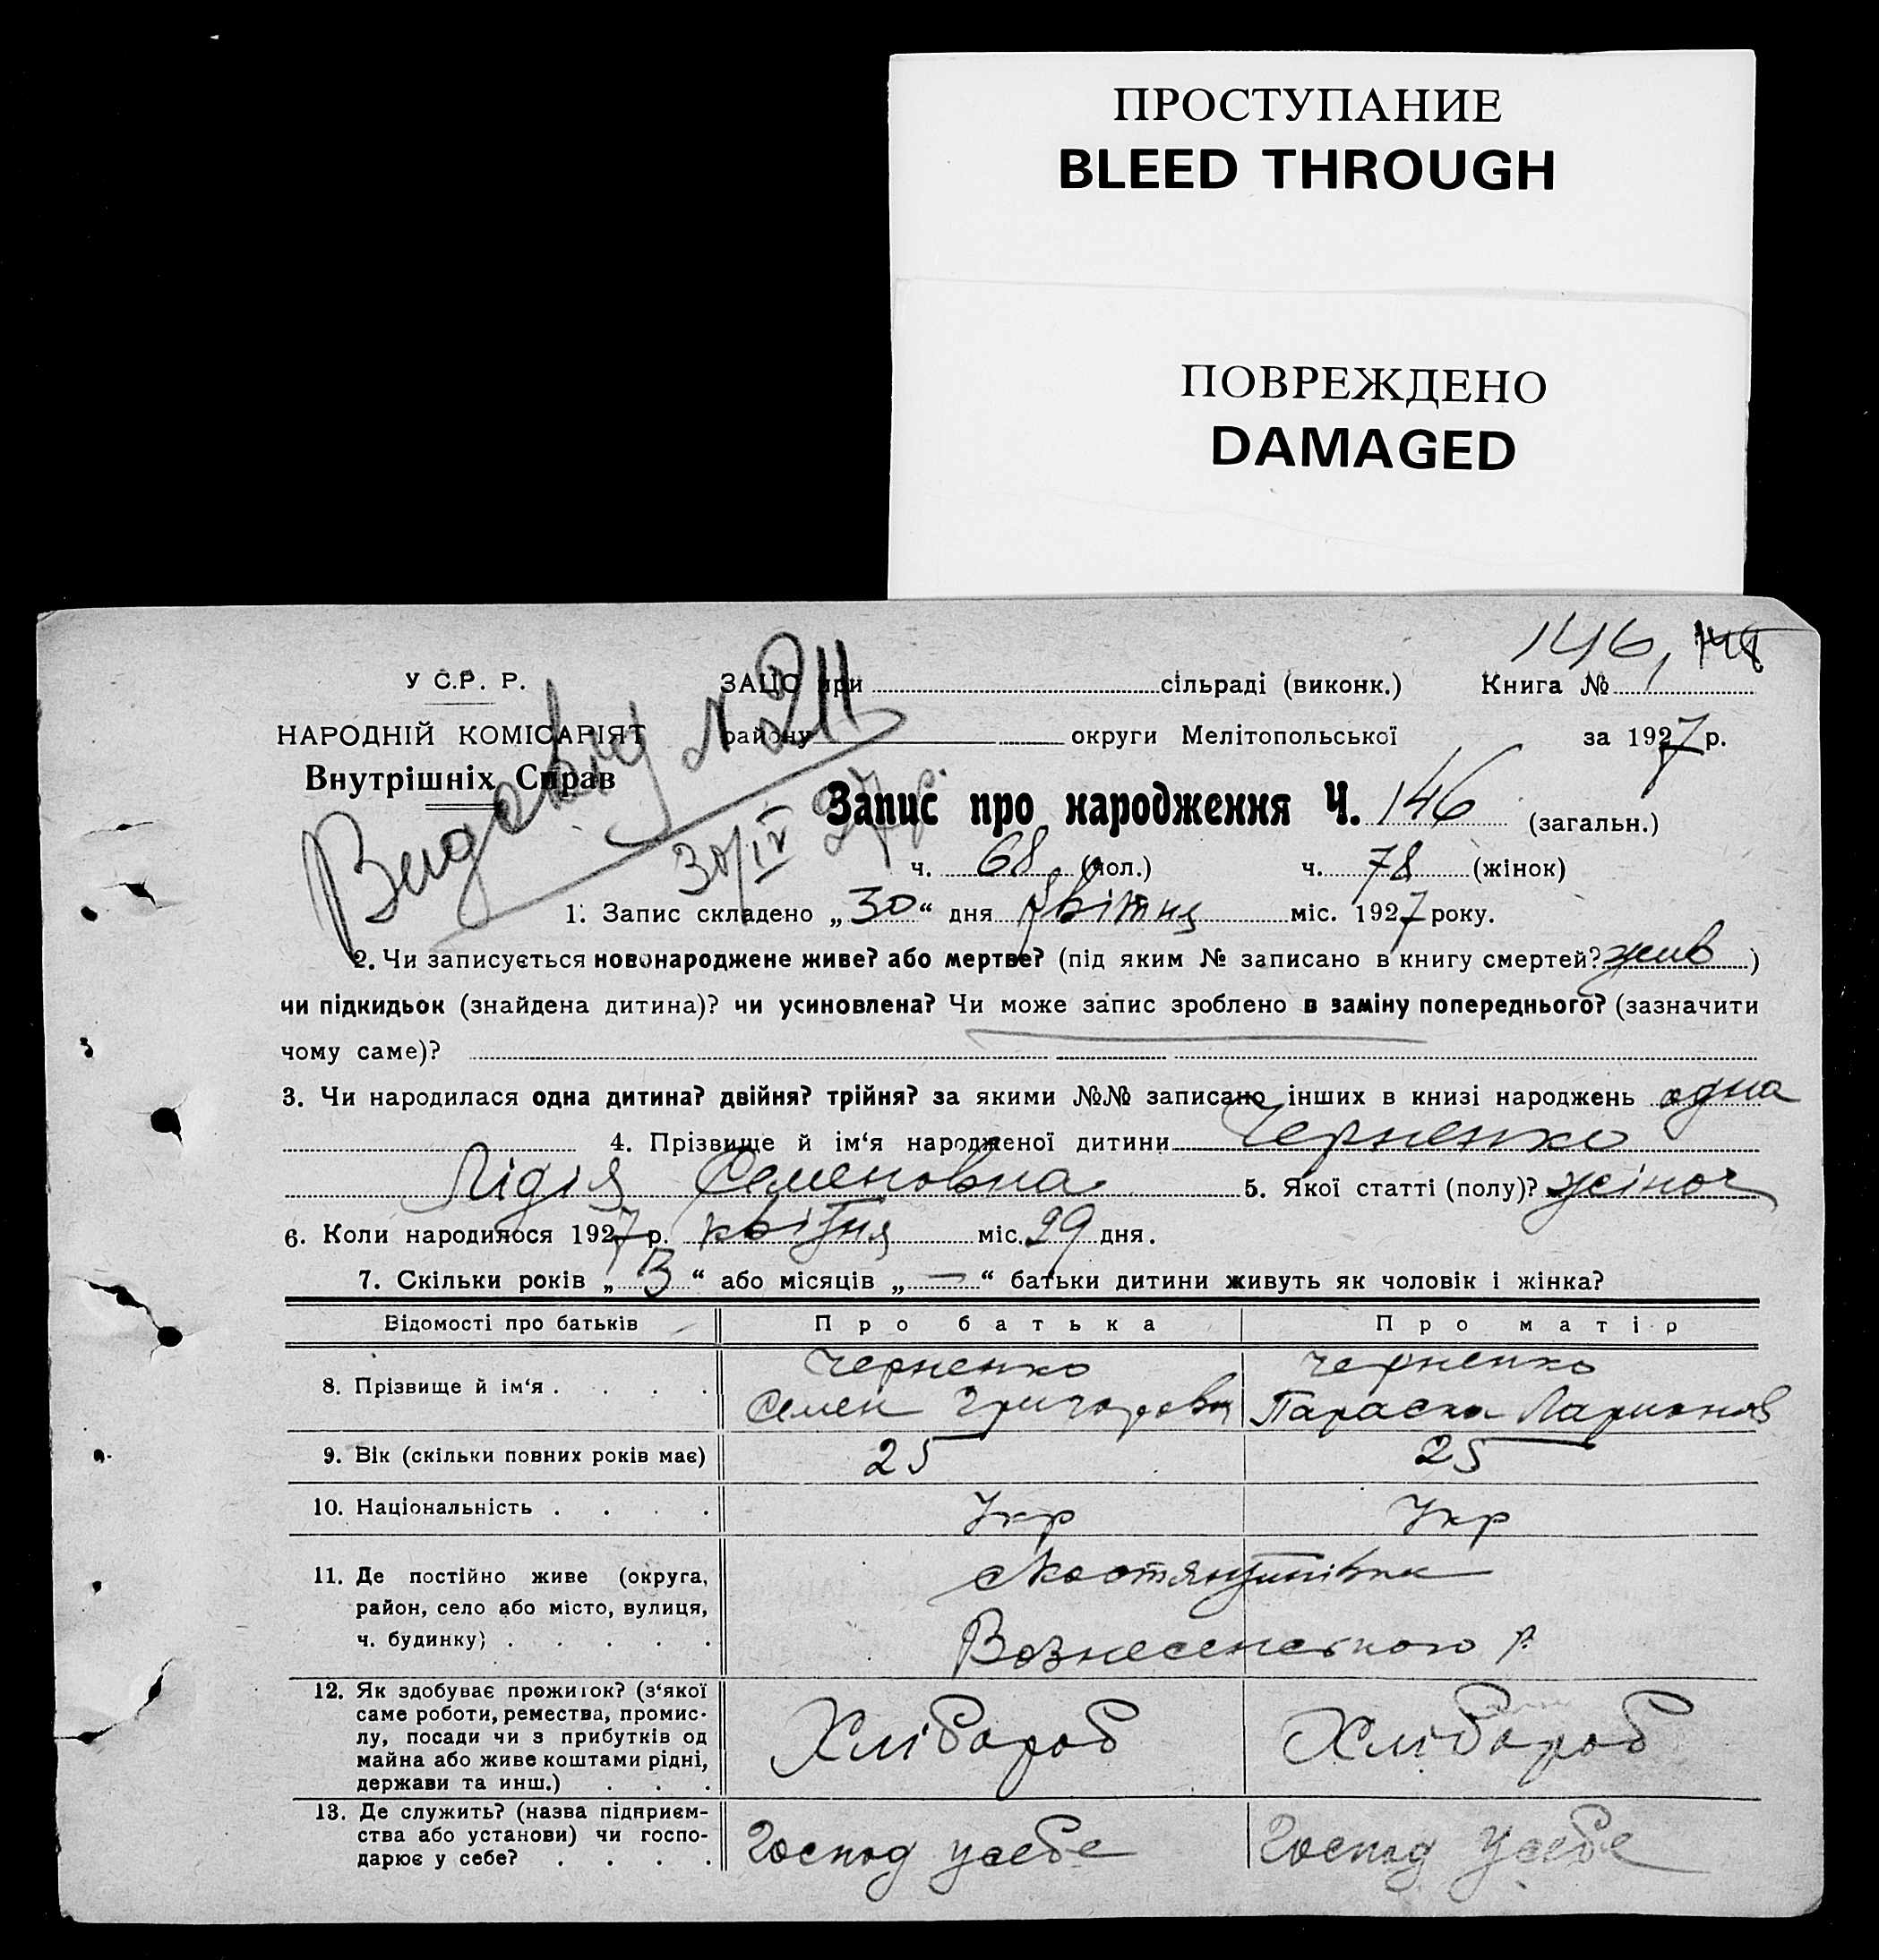 ПРОСТУПАНИЕ
BLEED THROUGH
ПОВРЕЖДЕНО
DAMAGED
146,
У С.Р. Р. ЗАЦС при сільраді (виконк.) Книга №
НАРОДНІЙ КОМІСАРІЯТ району округи Мелітопольської за 1927 р.
Внутрішніх Справ
Запис про народження Ч. 146 (загальн.)
30/IV 27р.
ч. 68 (чол.) ч. 78 (жінок)
1. Запис складено „30“ дня квітня міс. 1927 року.
2. Чи записується новонароджене живе? або мертве? (під яким № записано в книгу смертей? жив)
чи підкидьок (знайдена дитина)? чи усиновлена? Чи може запис зроблено в заміну попереднього? (зазначити
чому саме)?
3. Чи народилася одна дитина? двійня? трійня? за якими №№ записано інших в книзі народжень одна
4. Прізвище й ім‘я народженої дитини Черненко
Лідія Семеновна 5. Якої статті (полу)? жіноч
6. Коли народилося 1927 р. квітня міс. 29 дня.
7. Скільки років „3“ або місяців „—“ батьки дитини живуть як чоловік і жінка?
Відомості про батьків Про батька Про матір
8. Прізвище й ім‘я . . . . Черненко Черненко
Семен Григоров Параска Ларионов
9. Вік (скільки повних років має) 25 25
10. Національність . . . . Укр Укр
11. Де постійно живе (округа, Костянтинівка
район, село або місто, вулиця,
ч. будинку) . . . . . Вознесенського р.
12. Як здобуває прожиток? (з‘якої
саме роботи, ремества, промис-
лу, посади чи з прибутків од Хлібороб Хлібороб
майна або живе коштами рідні,
держави та инш.) . . .
13. Де служить? (назва підприєм-
ства або установи) чи госпо- Господ у себе Господ у себе
дарює у себе? . . . .